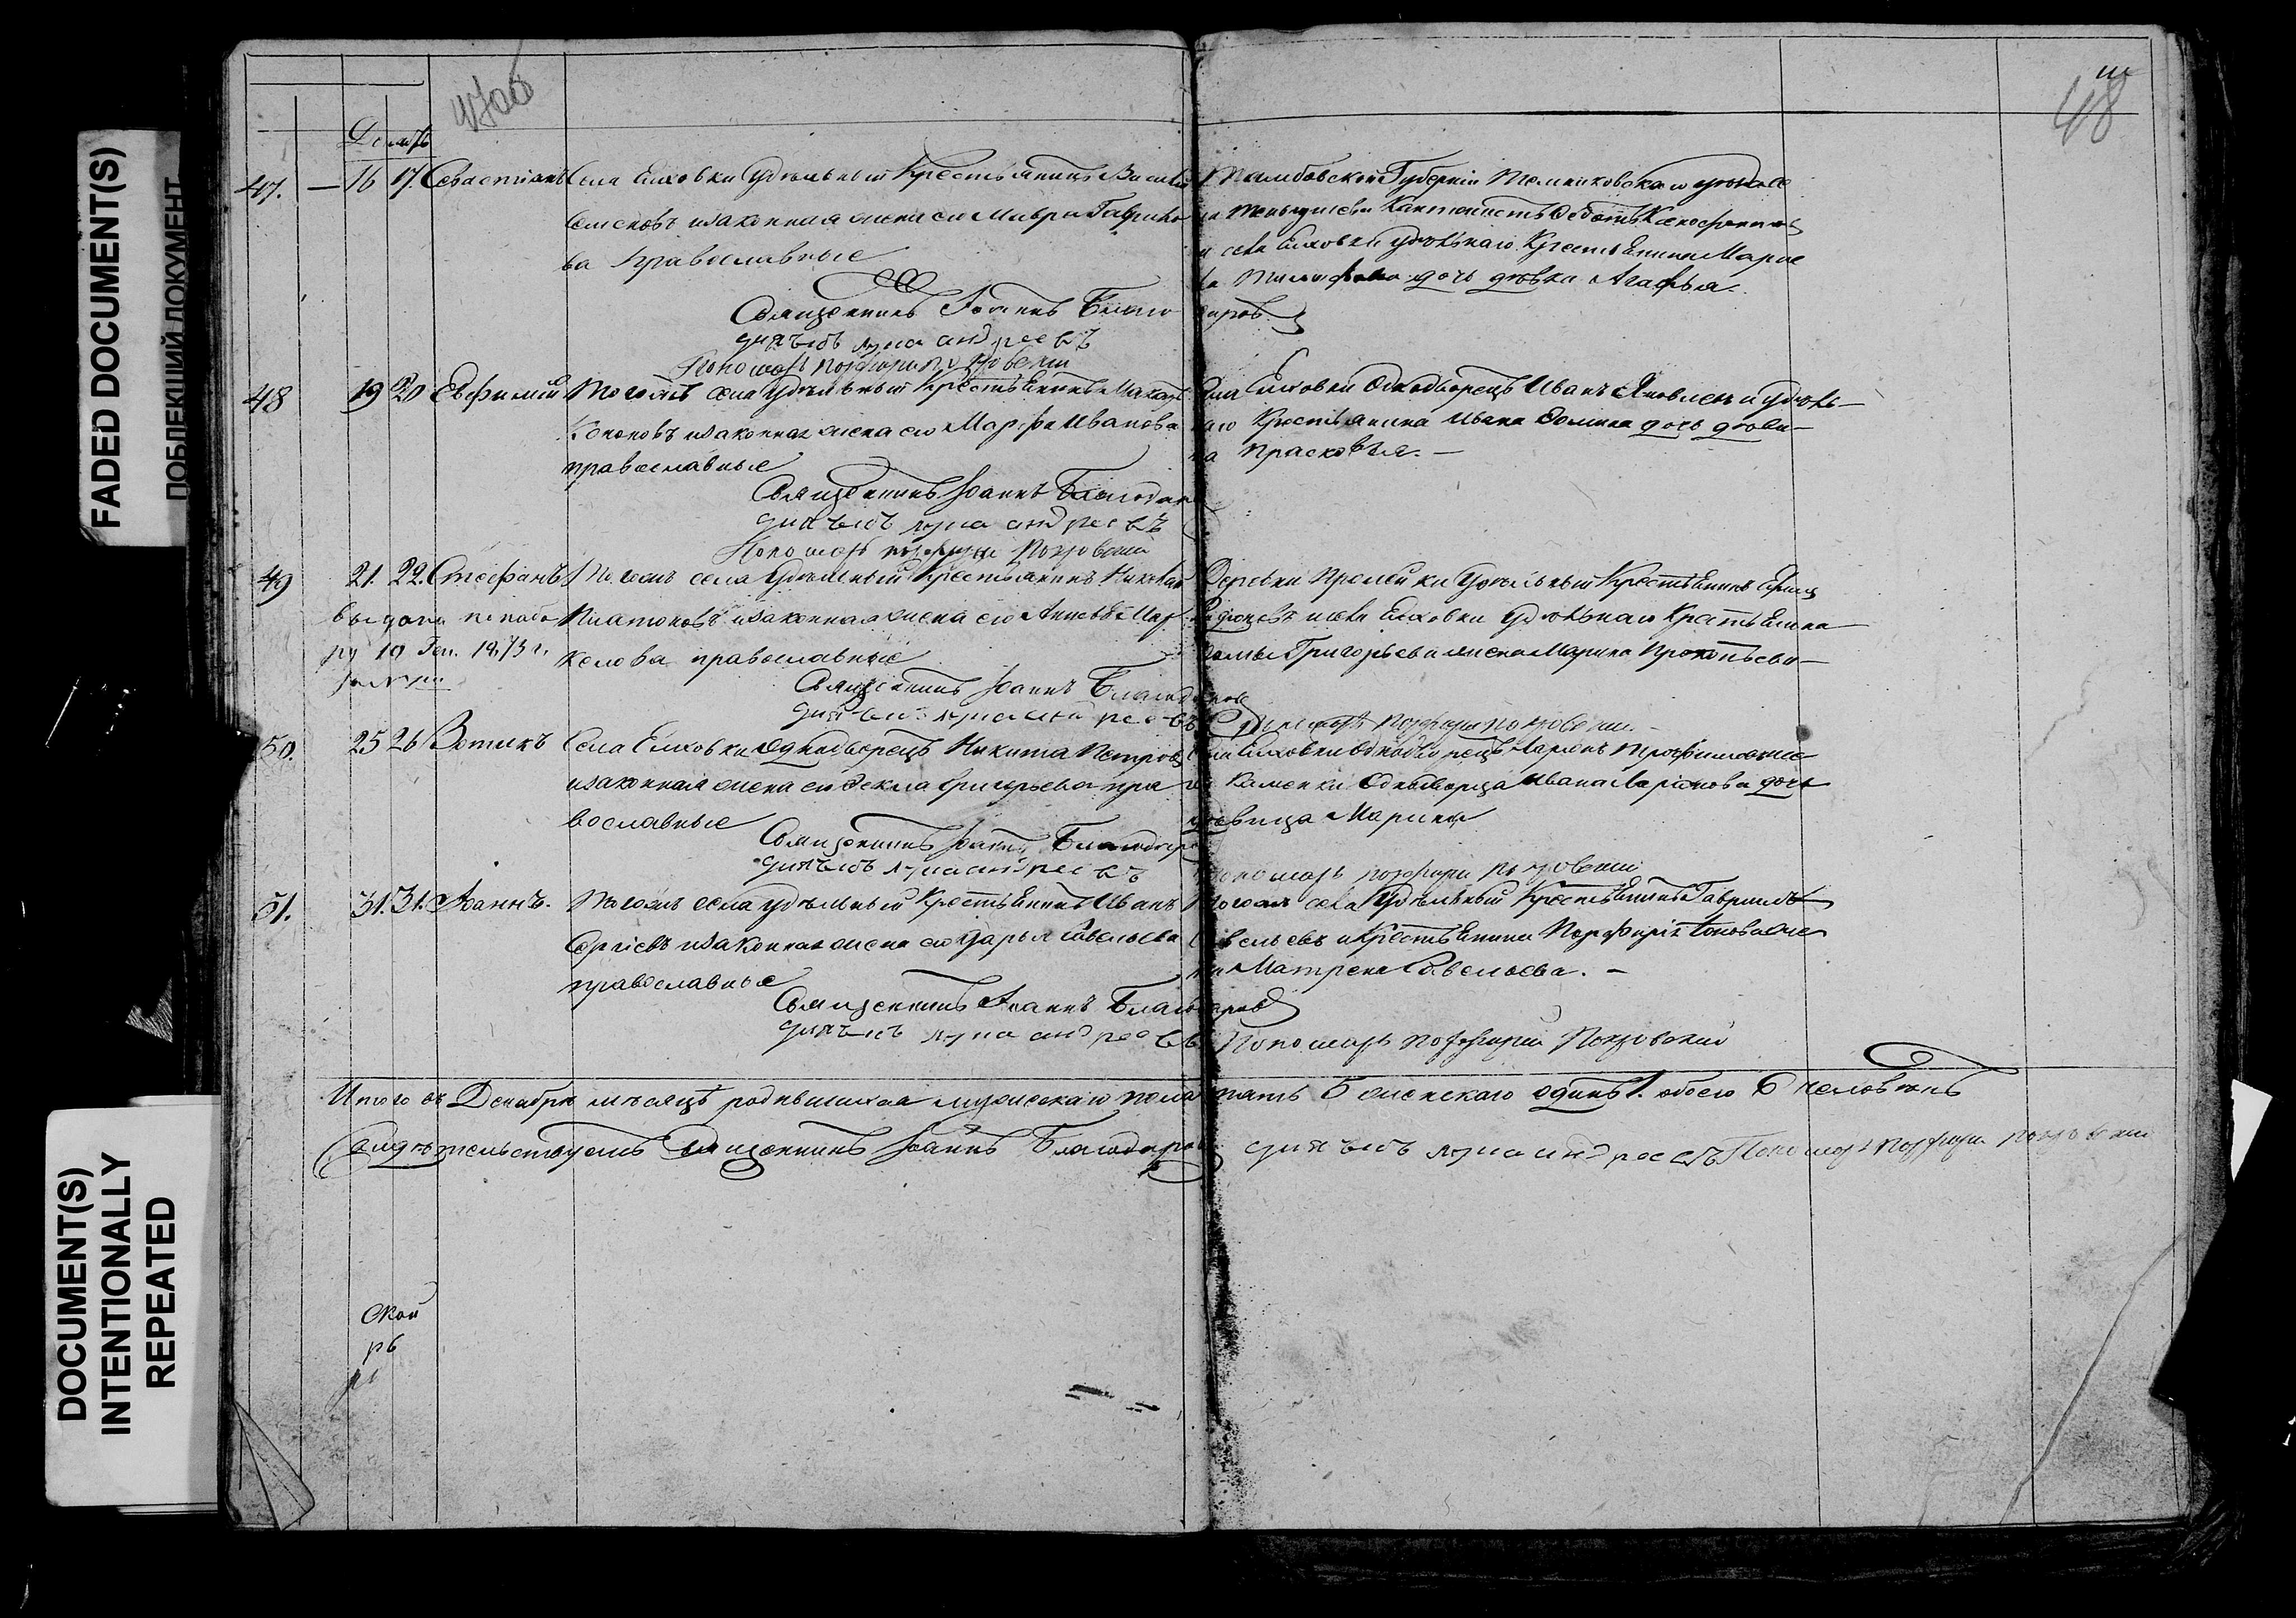 47об
48
Декабрь
47. — 16 17. Севастіанъ
Села Елховки Удѣльный Крестьянинъ Василій
Семеновъ и законная жена его Мавра Гаврило
ва православные
Тамбовской Губерніи Темниковскаго уѣзда се
Кантонистъ Федотъ Ксенофонтовъ
и села Елховки удѣльнаго Крестьянина Марке
дочь дѣвка Агафья.
Священникъ Іоаннъ Благодаровъ
діячекъ лука андреевъ
Пономарь порфирій покровскій
48 19 20 Евфимій
Тогожъ села Удѣльный Крестьянинъ Макаръ
Кононовъ и законная жена его Марфа Иванова
православные
села Елховки Однодворецъ Иванъ Яковлевъ и удѣль—
наго Крестьянина Ивана Фомина дочь дѣви—
ца Прасковья. —
Священникъ Іоаннъ Благодаровъ
діячекъ лука андреевъ
Пономарь порфирій покровскій
49 21. 22. Стефанъ
выдана по набо
ру 10 Ген. 1873 г.
Тогожъ села Удѣльный Крестьянинъ Николай
Платоновъ и законная жена его Анна Мар
келова православные
Деревни Промзейки Удѣльный Крестьянинъ
и села Елховки удѣльнаго Крестьянина
Фомы Григорьева жена Марина Прокопьева —
Священникъ Іоаннъ Благодаровъ
діячекъ лука андреевъ Пономарь порфирій покровскій
50. 25 26 Зотикъ
Села Елховки однодворецъ Никита Петровъ
и законная жена его Фекла Григорьева пра
вославные
села Елховки однодворецъ Ларіонъ Трофимовъ и се
ла Каменки Однодворца Ивана Ларіонова дочь
дѣвица Марина
Священникъ Іоаннъ Благодаровъ
діячекъ лука андреевъ Пономарь порфирій покровскій
51. 31. 31. Іоаннъ.
Тогожъ села удѣльный Крестьянинъ Иванъ
Сергіевъ и законная жена его Дарья Савельева
православные
Тогожъ села Удѣльный Крестьянинъ Гавріилъ
Савельевъ и Крестьянина Порфирія Кононова же
на Матрена Савельева. —
Священникъ Іоаннъ Благодаровъ
діячекъ лука андреевъ Пономарь порфирій Покровскій
Итого въ Декабрѣ мѣсяцѣ родившихся мужескаго пола пять 5 женскаго одинъ 1. обоего 6 человѣкъ
Свидѣтельствуемъ Священникъ Іоаннъ Благодаровъ діячекъ лука андреевъ Пономарь порфирій покровскій
FADED DOCUMENT(S)
ПОБЛЕКШИЙ ДОКУМЕНТ
DOCUMENT(S)
INTENTIONALLY
REPEATED